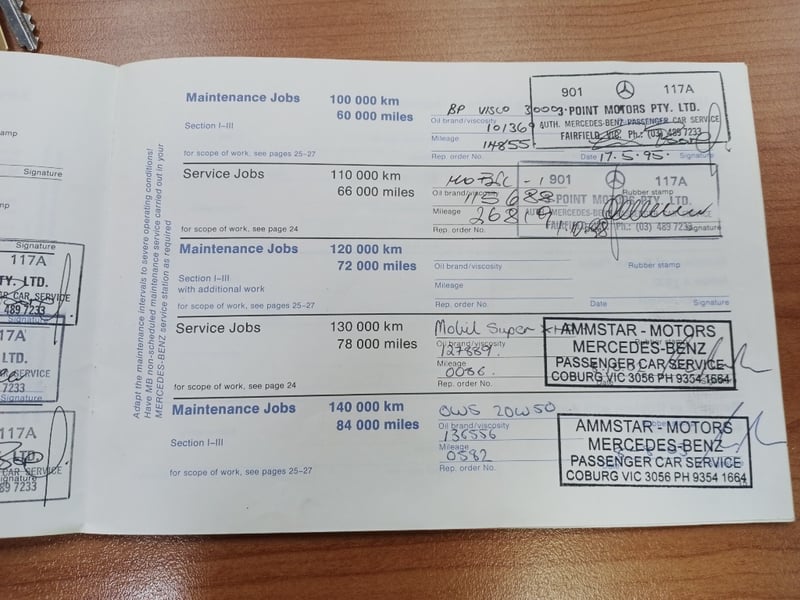 tamp
Signature
tamp
Signature
117A
TY. LTD.
CAR SERVICE
489 7233
17A
LTD.
SERVICE
Signature
117A
LTD.
SERVICE
89 7233
Adapt the maintenance intervals to severe operating conditions!
Have MB non-scheduled maintenance service carried out in your
MERCEDES-BENZ service station as required
Maintenance Jobs
100 000 km
60 000 miles
Section I–III
for scope of work, see pages 25–27
BP VISCO 3000
Oil brand/viscosity
101369
Mileage
14855
Rep. order No.
901 117A
3·POINT MOTORS PTY. LTD.
AUTH. MERCEDES-BENZ PASSENGER CAR SERVICE
FAIRFIELD, VIC. Ph.: (03) 489 7233
Date 17.5.95. Signature
Service Jobs
110 000 km
66 000 miles
for scope of work, see page 24
Oil brand/viscosity
115688
Mileage
26819
Rep. order No.
901 117A
Rubber stamp
POINT MOTORS PTY. LTD.
AUTH. MERCEDES-BENZ
PH.: (03) 489 7233
Signature
Maintenance Jobs
120 000 km
72 000 miles
Section I–III
with additional work
for scope of work, see pages 25–27
Oil brand/viscosity
Mileage
Rep. order No.
Rubber stamp
Date
Signature
Service Jobs
130 000 km
78 000 miles
for scope of work, see page 24
Mobil Super
Oil brand/viscosity
127889.
Mileage
0086.
Rep. order No.
AMMSTAR - MOTORS
MERCEDES-BENZ
PASSENGER CAR SERVICE
COBURG VIC 3056 PH 9354 1664
Maintenance Jobs
140 000 km
84 000 miles
Section I–III
for scope of work, see pages 25–27
OWS 20W50
Oil brand/viscosity
136556
Mileage
0582
Rep. order No.
AMMSTAR - MOTORS
MERCEDES-BENZ
PASSENGER CAR SERVICE
COBURG VIC 3056 PH 9354 1664